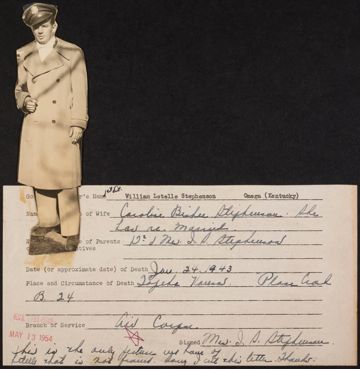 's Name Lt. William Lotelle Stephenson Omega (Kentucky)
of Wife Caroline Bisher Stephenson. She
has re. Married.
of Parents Dr & Mrs J. D. Stephenson
Date (or approximate date) of Death Jan. 24. 1943
Place and Circumstance of Death Plane Crash
B 24
Branch of Service Air Corps
MAY 13 1954
Signed Mrs. J. D. Stephenson
This is the only picture we have of
that is not framed. Sorry I cut this letter. Thanks.